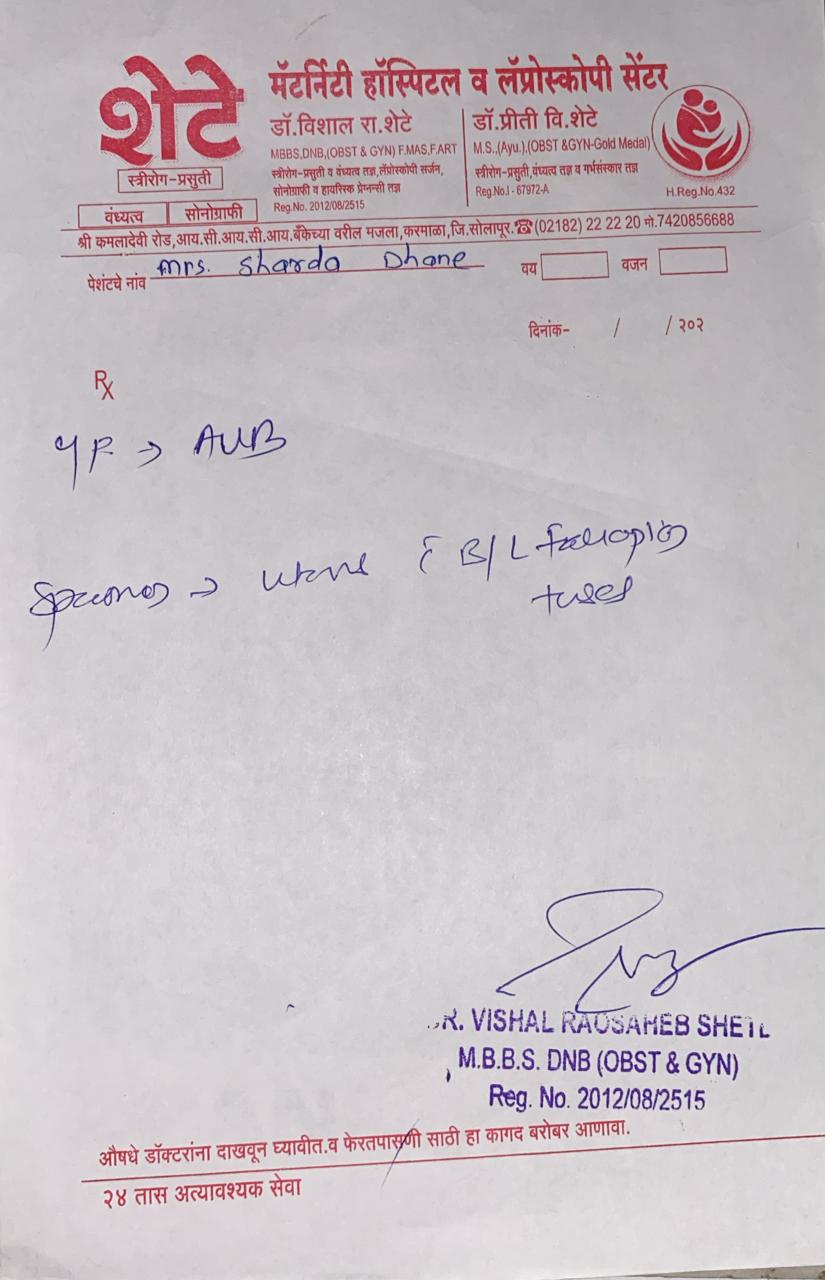 शेटे
मॅटर्निटी हॉस्पिटल व लॅप्रोस्कोपी सेंटर
स्त्रीरोग-प्रसुती
वंध्यत्व सोनोग्राफी
डॉ.विशाल रा.शेटे
MBBS,DNB,(OBST & GYN) F.MAS,F.ART
स्त्रीरोग-प्रसुती व वंध्यत्व तज्ञ,लॅप्रोस्कोपी सर्जन,
सोनोग्राफी व हायरिस्क प्रेग्नन्सी तज्ञ
Reg.No. 2012/08/2515
डॉ.प्रीती वि.शेटे
M.S.,(Ayu.),(OBST &GYN-Gold Medal)
स्त्रीरोग-प्रसुती,वंध्यत्व तज्ञ व गर्भसंस्कार तज्ञ
Reg.No.I - 67972-A
H.Reg.No.432
श्री कमलादेवी रोड,आय.सी.आय.सी.आय.बँकेच्या वरील मजला,करमाळा,जि.सोलापूर.☎(02182) 22 22 20 मो.7420856688
पेशंटचे नांव Mrs. Sharda Dhane वय वजन
दिनांक- / / २०२
Rx
F → AUB
→ B/L
.R. VISHAL RAOSAHEB SHETE
M.B.B.S. DNB (OBST & GYN)
Reg. No. 2012/08/2515
औषधे डॉक्टरांना दाखवून घ्यावीत.व फेरतपासणी साठी हा कागद बरोबर आणावा.
२४ तास अत्यावश्यक सेवा